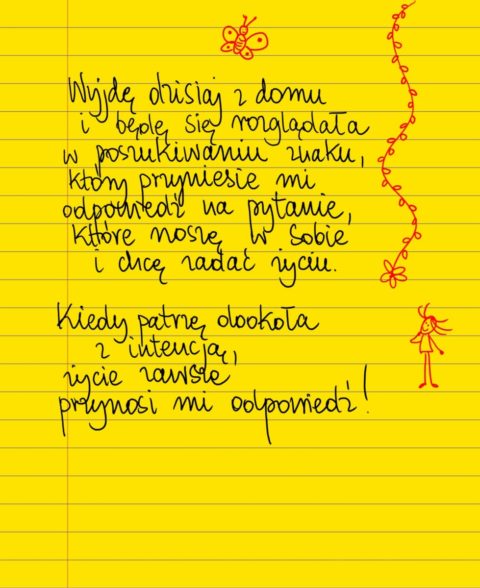 Wyjdę dzisiaj z domu
i będę się rozglądała
w poszukiwaniu znaku,
który przyniesie mi
odpowiedź na pytanie,
które noszę w sobie
i chcę zadać życiu.
Kiedy patrzę dookoła
z intencją,
życie zawsze
przynosi mi odpowiedź!